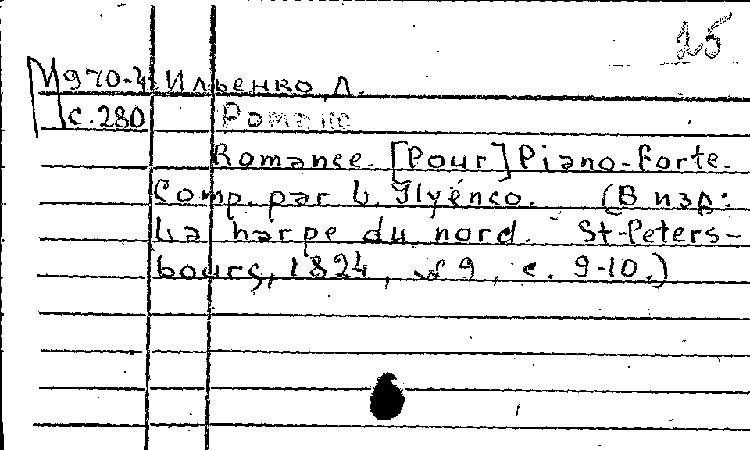 25
М970-4 Ильенко, Л.
с.280 Романс
Romance. [Pour] Piano-forte.
Comp. par L. Ilyénco. (В изд:
La harpe du nord. St-Peters-
bourg, 1824, № 9, с. 9-10.)